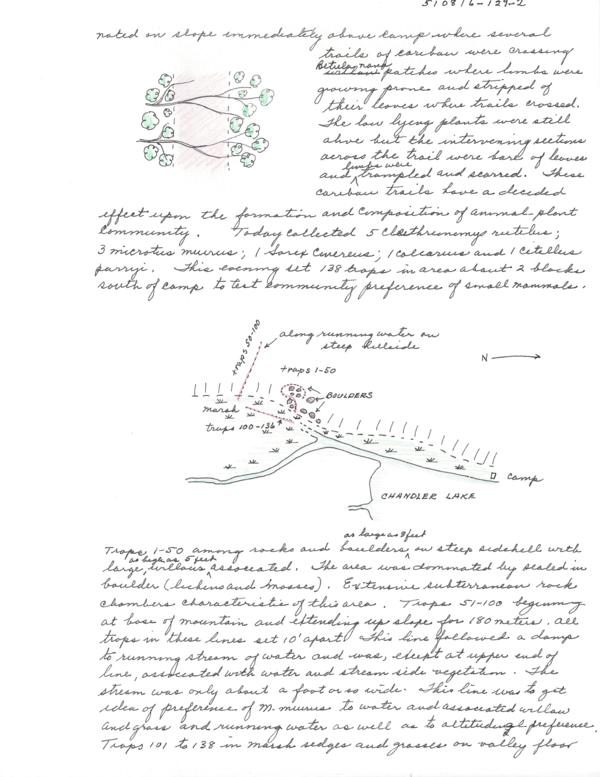 510816-129-2
noted on slope immediately above camp where several
trails of caribou were crossing
Betula nana
patches where limbs were
growing prone and stripped of
their leaves where trails crossed.
The low lying plants were still
alive but the intervening sections
across the trail were bare of leaves
limbs were
and trampled and scarred. These
caribou trails have a decided
effect upon the formation and composition of animal-plant
community. Today collected 5 Clethrionomys rutilus;
3 microtus miurus; 1 Sorex cinereus; 1 calcarius and 1 Citellus
parryi. This evening set 138 traps in area about 2 blocks
south of camp to test community preference of small mammals.
traps 50-100
along running water on
steep hillside
N
traps 1-50
BOULDERS
marsh
traps 100-136
camp
CHANDLER LAKE
as large as 8 feet
Traps 1-50 among rocks and boulders on steep sidehill with
as high as 5 feet
large willows associated. The area was dominated by sealed in
boulder (lichens and mosses). Extensive subterranean rock
chambers characteristic of this area. Traps 51-100 beginning
at base of mountain and extending up slope for 180 meters. all
traps in these lines set 10' apart. This line followed a damp
to running stream of water and was, except at upper end of
line, associated with water and stream side vegetation. The
stream was only about a foot or so wide. This line was to get
idea of preference of M. miurus to water and associated willow
and grass and running water as well as to altitudinal preference.
Traps 101 to 138 in marsh sedges and grasses on valley floor